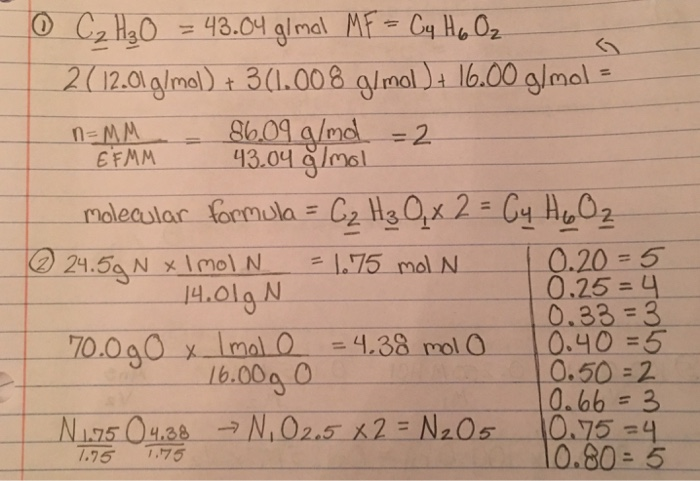 ① C2H3O = 43.04 g/mol MF = C4H6O2
2(12.01g/mol) + 3(1.008 g/mol) + 16.00 g/mol =
n = MM / EFMM = 86.09 g/mol / 43.04 g/mol = 2
molecular formula = C2H3O1 x 2 = C4H6O2
② 24.5g N x 1 mol N / 14.01g N = 1.75 mol N
70.0gO x 1mol O / 16.00g O = 4.38 mol O
N 1.75/1.75 O 4.38/1.75 → N1O2.5 x2 = N2O5
0.20 = 5
0.25 = 4
0.33 = 3
0.40 = 5
0.50 = 2
0.66 = 3
0.75 = 4
0.80 = 5